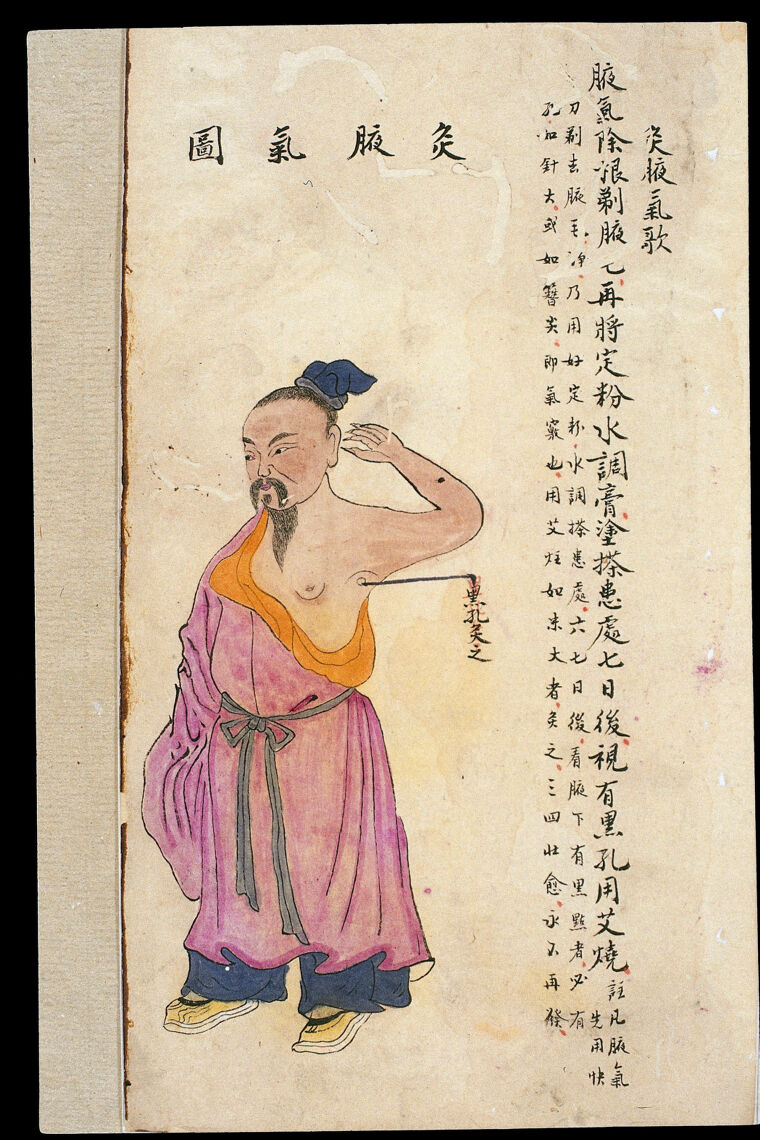 灸腋氣歌
腋氣除根剃腋毛再將定粉水調膏塗搽患處七日後視有黑孔用艾燒
註凡腋氣
先用快
刀剃去腋毛净乃用好定粉水調搽患處六七日後看腋下有黑點者必有
孔如針大或如簪尖即氣竅也用艾炷如米大者灸之三四壯愈永不再發
灸腋氣圖
黑孔灸之